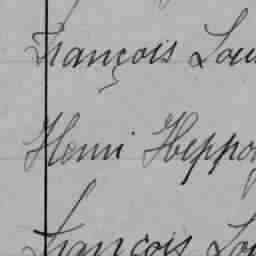 François Lou
Henri Heppo
François Lo